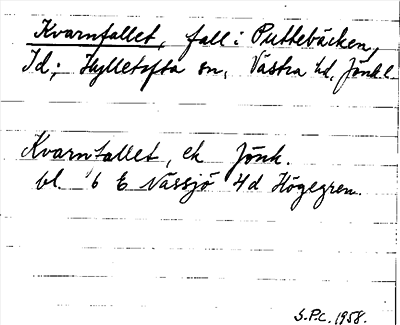 Kvarnfallet, fall i Puttebäcken,
Id; Hylletofta sn, Västra hd, Jönk. l.
Kvarnfallet, ek Jönk.
bl. 6 E Nässjö 4d Högegren.
S.P.C. 1958.